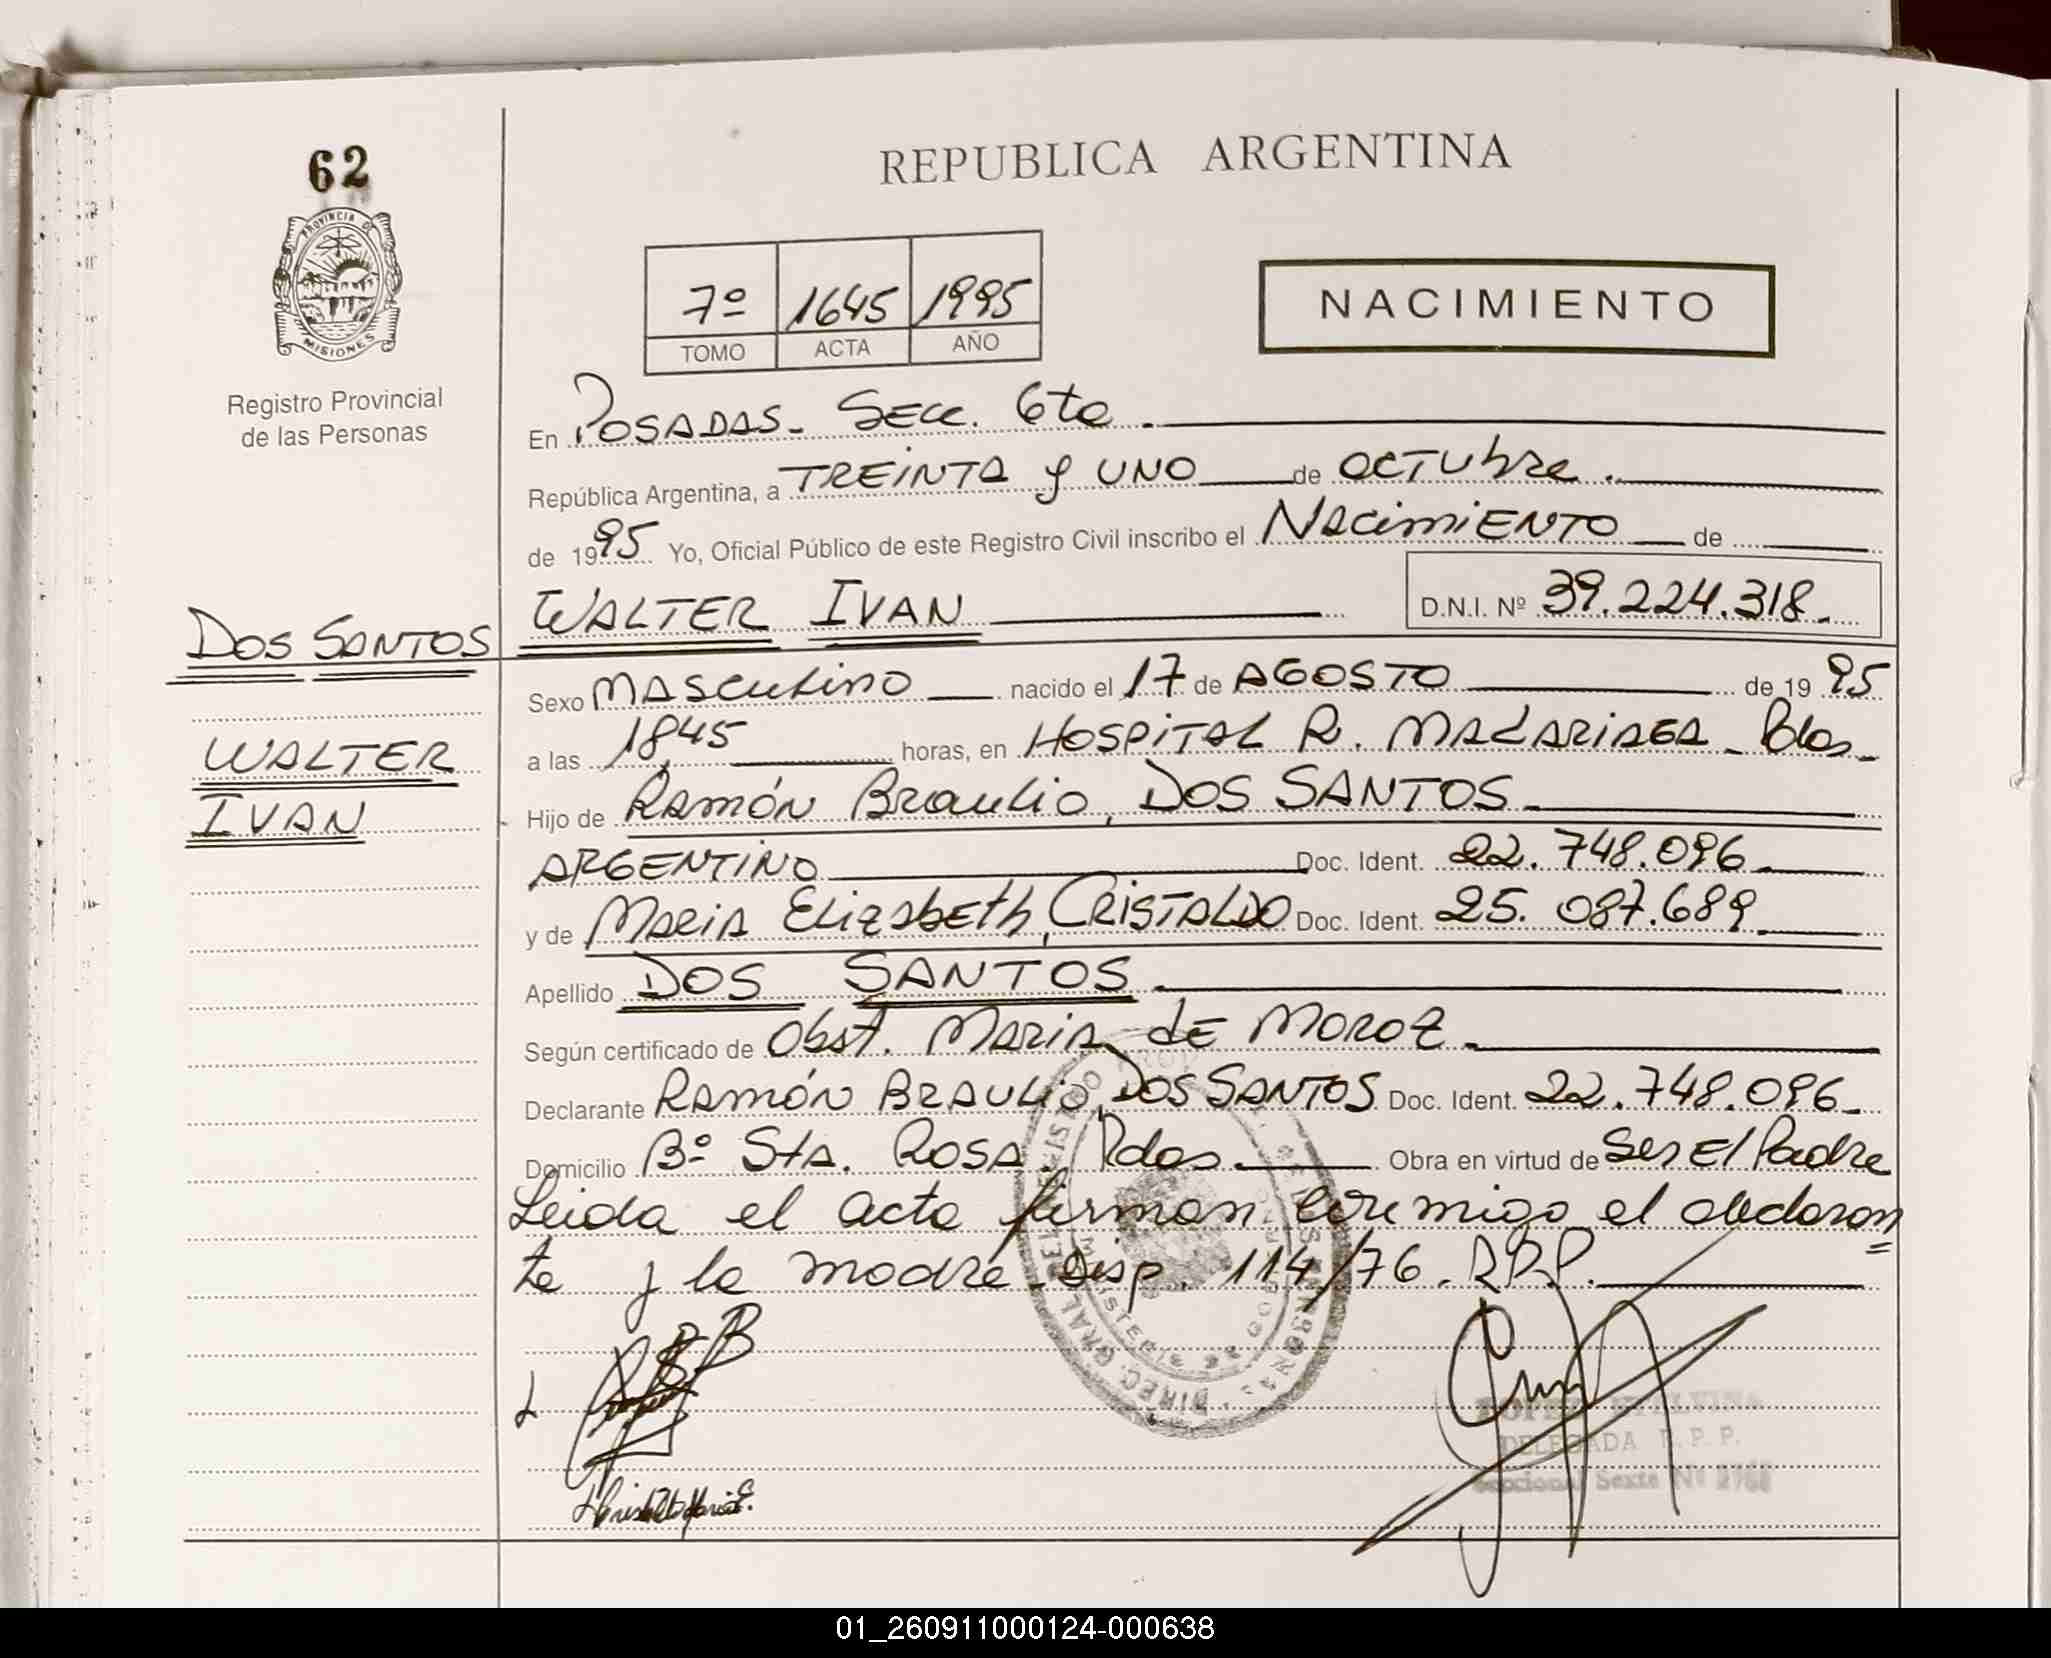 62
PROVINCIA DE
MISIONES
Registro Provincial
de las Personas
REPUBLICA ARGENTINA
7º 1645 1995
TOMO ACTA AÑO
NACIMIENTO
En POSADAS - Secc. 6ta.
República Argentina, a TREINTA y UNO de OCTUbre.
de 1995 Yo, Oficial Público de este Registro Civil inscribo el NacimiENTO de
WALTER IVAN D.N.I. Nº 39.224.318.
DOS SANTOS
WALTER
IVAN
Sexo MASCULINO nacido el 17 de AGOSTO de 1995
a las 18,45 horas, en HOSPITAL R. MADARIAGA - Pdas -
Hijo de RAMÓN Braulio, DOS SANTOS
ARGENTINO Doc. Ident. 22.748.096
y de MARIA ElizabEth, CRISTALDO Doc. Ident. 25.087.689
Apellido DOS SANTOS
Según certificado de Obst. MARIA dE MOROZ
Declarante RAMÓN BRAULIO, DOS SANTOS Doc. Ident. 22.748.096
Domicilio Bº Sta. ROSA. Pdas. Obra en virtud de Ser El Padre
Leida el acta firman conmigo el declaran
te y la madre - Disp. 114/76. R.P.P.
DELEGADA R. P. P.
Seccional Sexta Nº
01_260911000124-000638